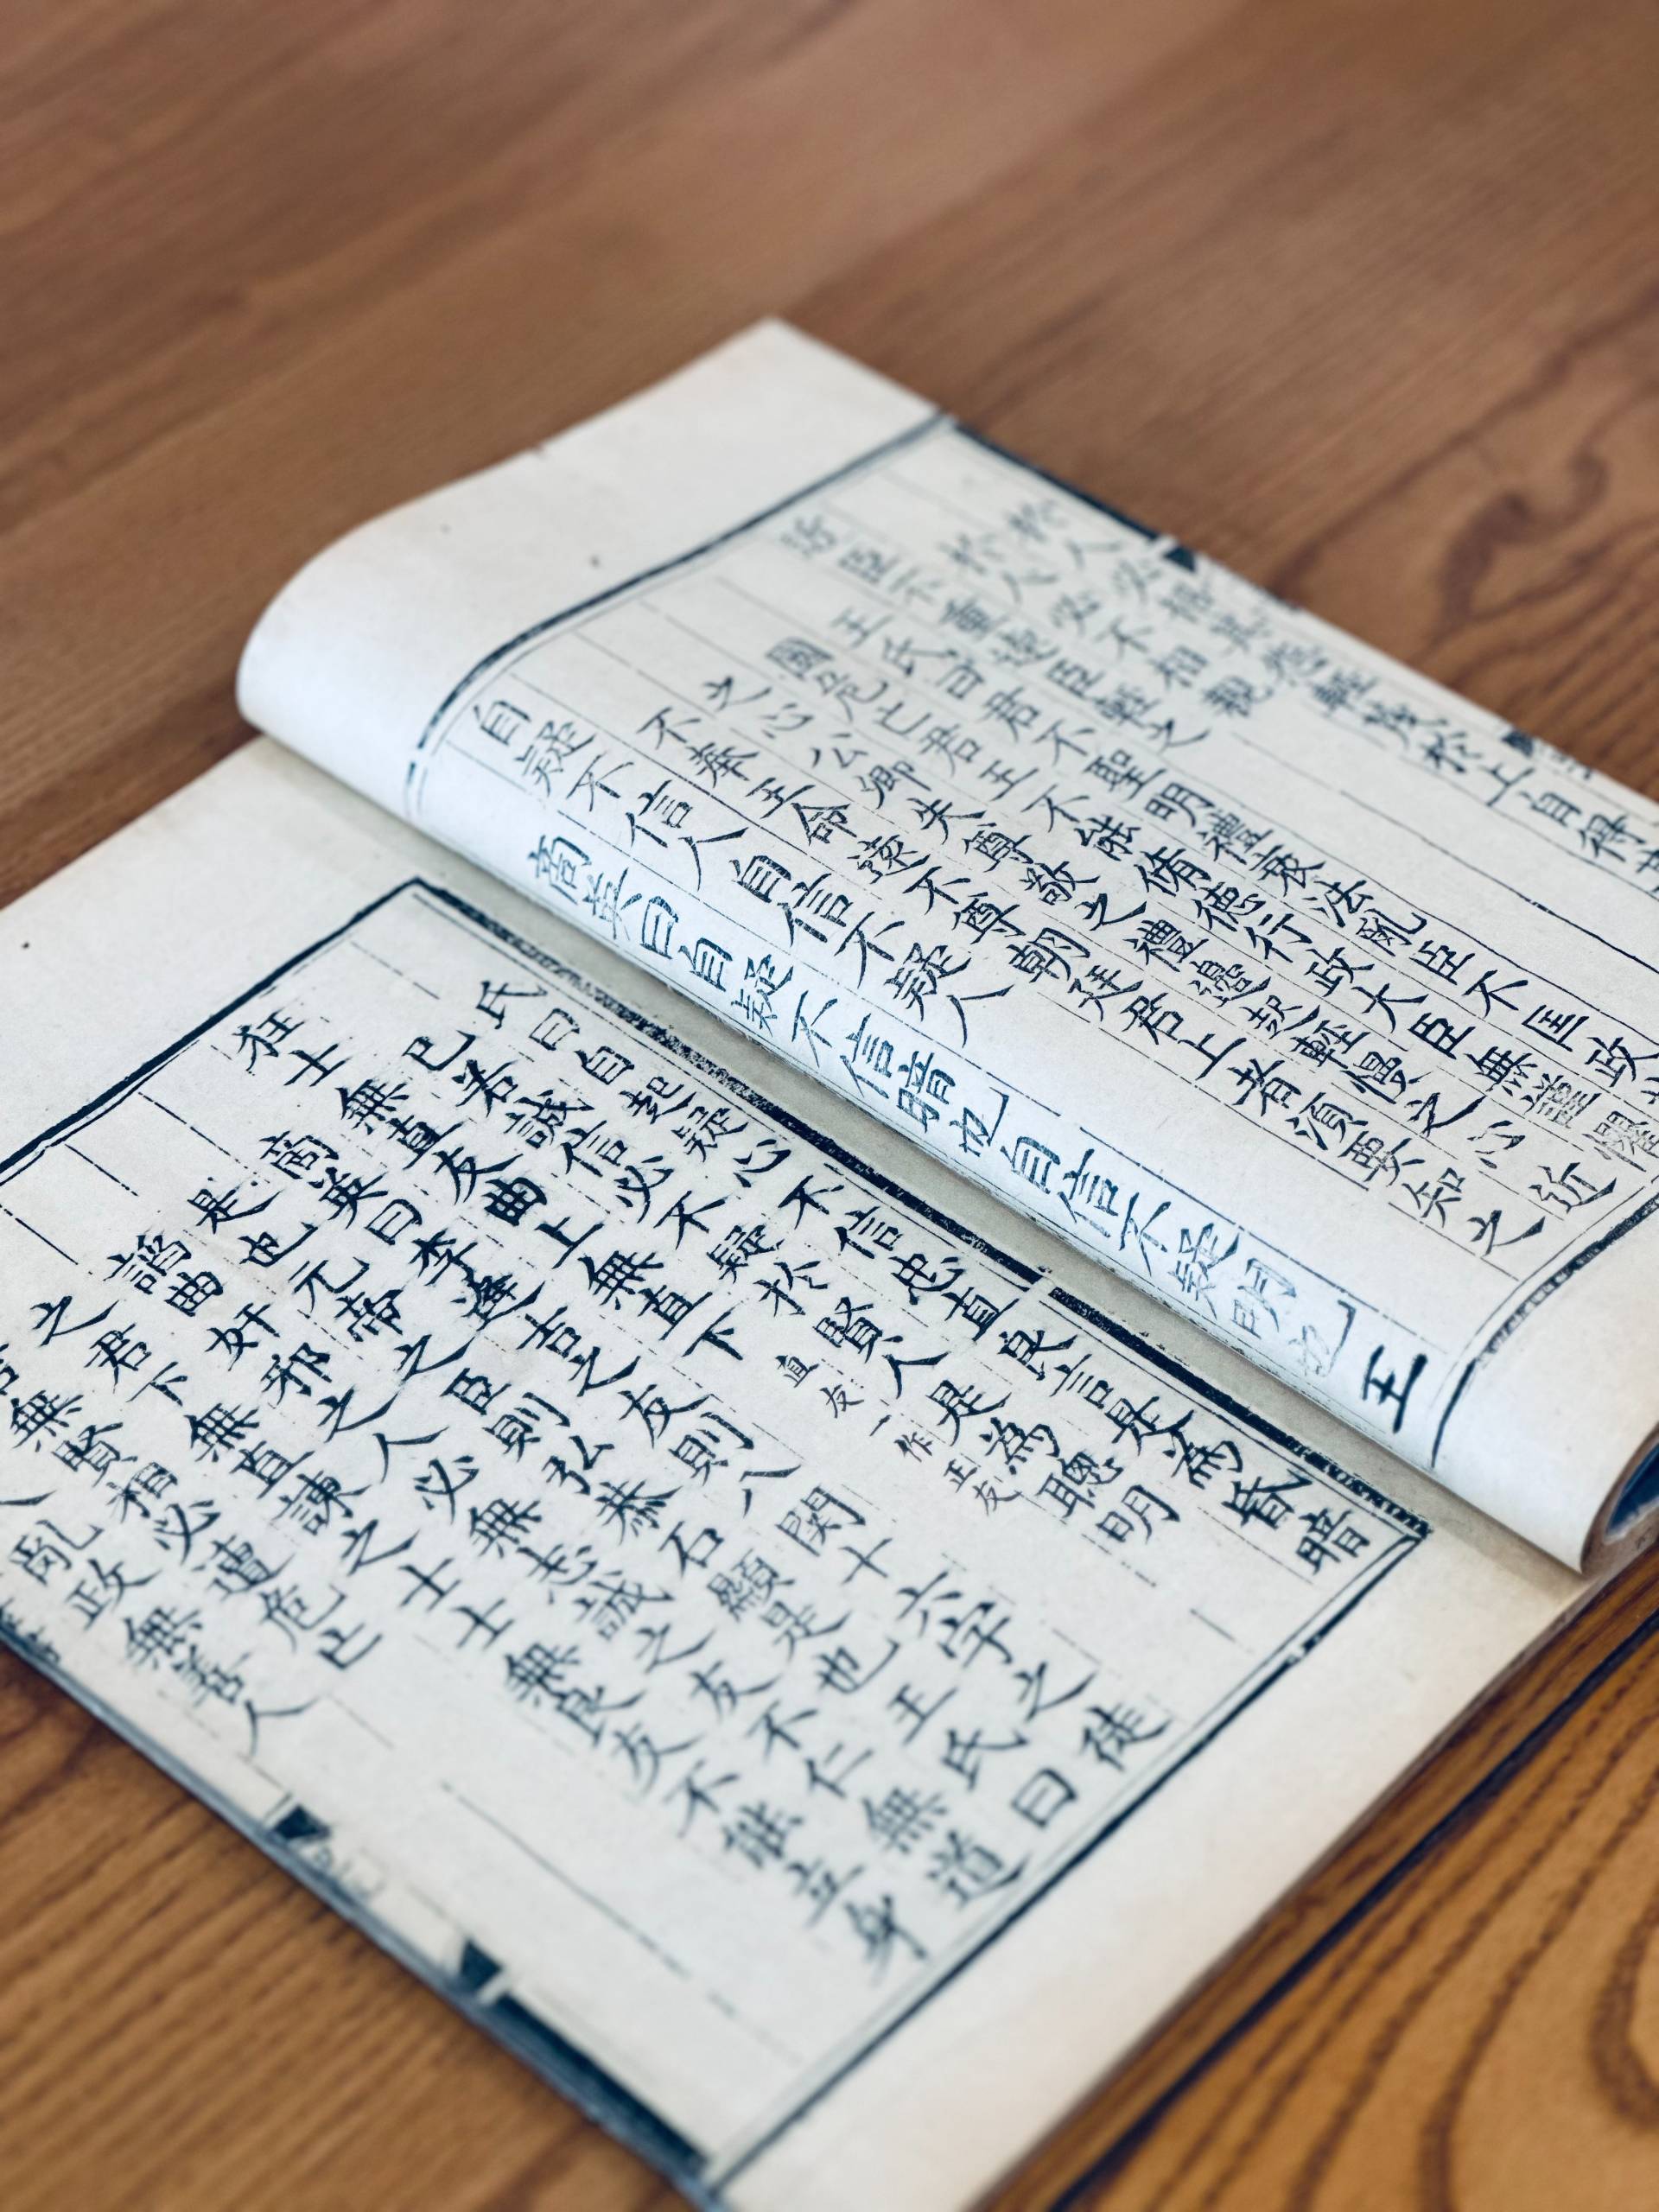 於人必不相親
近臣不重遠臣輕之
王氏曰君不聖明禮衰法亂臣不匡政
國危亡君王不能脩德行政大臣無謹懼
之心公卿失尊敬之禮邊起輕慢之心近
不奉王命遠不尊朝廷君上者須要知之
自疑不信人自信不疑人
商英曰自疑不信暗也自信不疑明也 王
氏曰自起疑心不信忠直良言是為昏暗
己若誠信必不疑於賢人是為聰明
狂士無直友曲上無直下 直友一作正友
商英曰李逢吉之友則八関十六字之徒
是也元帝之臣則弘恭石顯是也王氏曰
諂曲奸邪之人必無志誠之友不仁無道
之君下無直諫之士士無良友不能立身
君無賢相必遭危亡
人亂政無善人